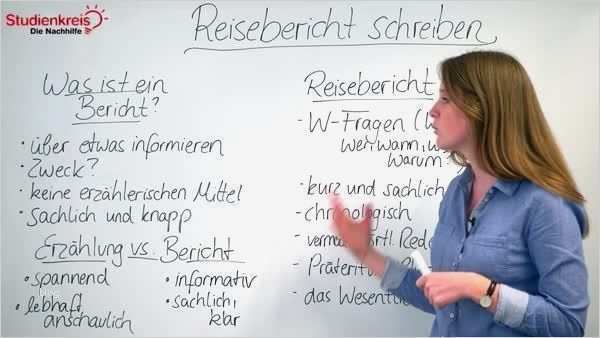 Studienkreis
Die Nachhilfe
Reisebericht schreiben
Was ist ein
Bericht?
• über etwas informieren
• Zweck?
• keine erzählerischen Mittel
• sachlich und knapp
Erzählung vs. Bericht
• spannend
• lebhaft,
anschaulich
• informativ
• sachlich,
klar
Reisebericht
- W-Fragen (
wer, wann, w
warum?
- kurz und sachlich
- chronologisch
- Rede
- Präterit
- das Wesentl